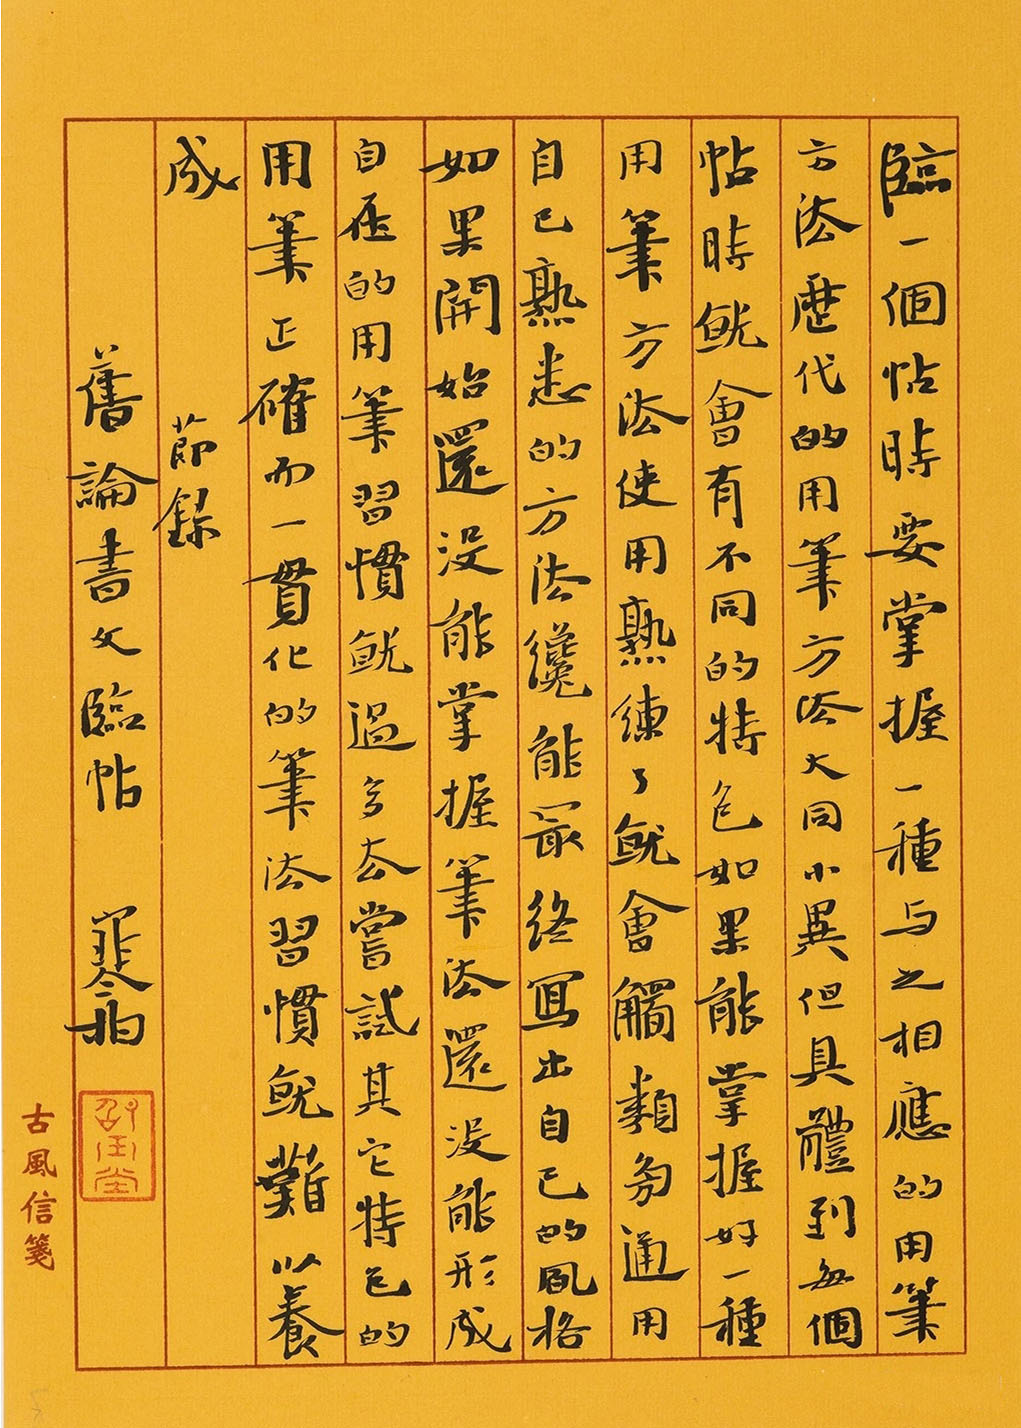 臨一個帖時要掌握一種与之相應的用筆
方法歷代的用筆方法大同小異但具體到每個
帖時就會有不同的特色如果能掌握好一種
用筆方法使用熟練了就會觸類旁通用
自已熟悉的方法纔能最終寫出自已的風格
如果開始還没能掌握筆法還没能形成
自在的用筆習慣就過多去嘗試其它特色的
用筆正確而一貫化的筆法習慣就難以養
成
節錄
舊論書文臨帖
寒雨
古風信箋